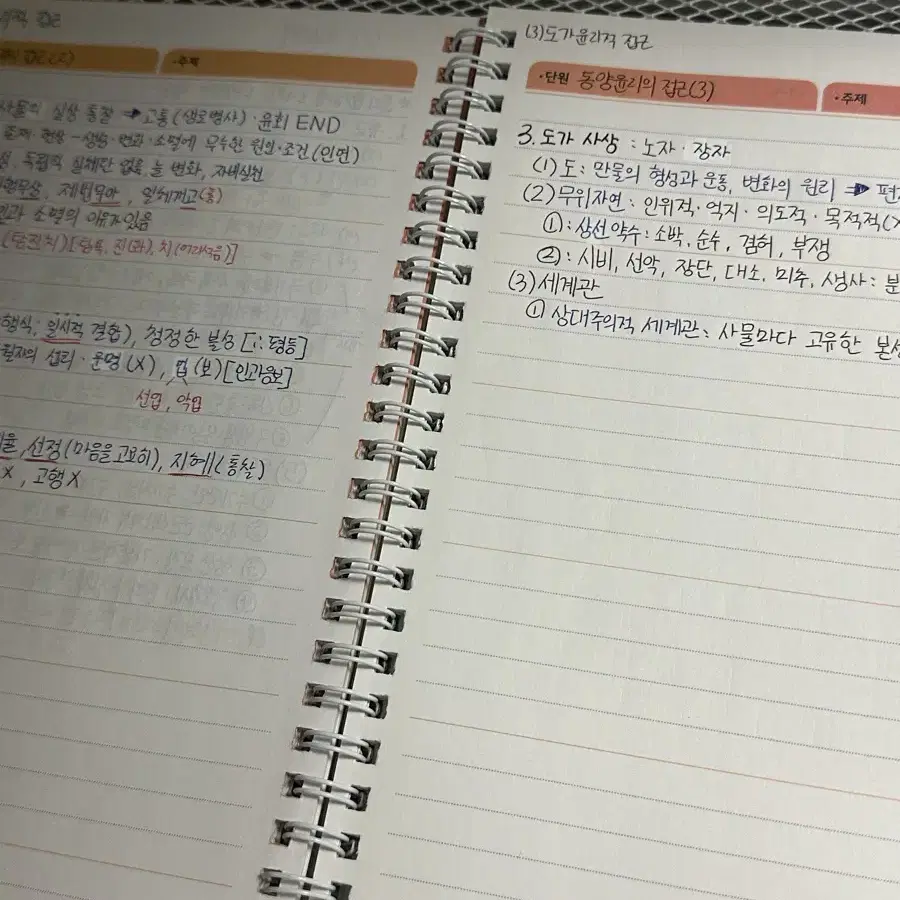 접근
·주제
사물의 실상 통찰 → 고통(생로병사)·윤회 END
존재·현상-생성·변화·소멸에 무수한 원인·조건(인연)
독립적 실체란 없음 늘 변화, 자비실천
제법무아, 일체개고(苦)
소멸의 이유 있음
[탐욕, 진(화), 치(어리석음)]
일시적 결합), 청정한 불성 [i:평등]
섭리·운명(X), 업(보)[인과응보]
선업, 악업
선정(마음을 고요히), 지혜(통찰)
X, 고행X
(3)도가윤리적 접근
·단원 동양윤리의 접근(3)
·주제
3. 도가 사상 : 노자·장자
(1) 도: 만물의 형성과 운동, 변화의 원리 →
(2) 무위자연: 인위적·억지·의도적·목적적(X
①:상선약수: 소박, 순수, 겸허, 부쟁
②: 시비, 선악, 장단, 대소, 미추, 생사:
(3) 세계관
① 상대주의적 세계관: 사물마다 고유한 본성